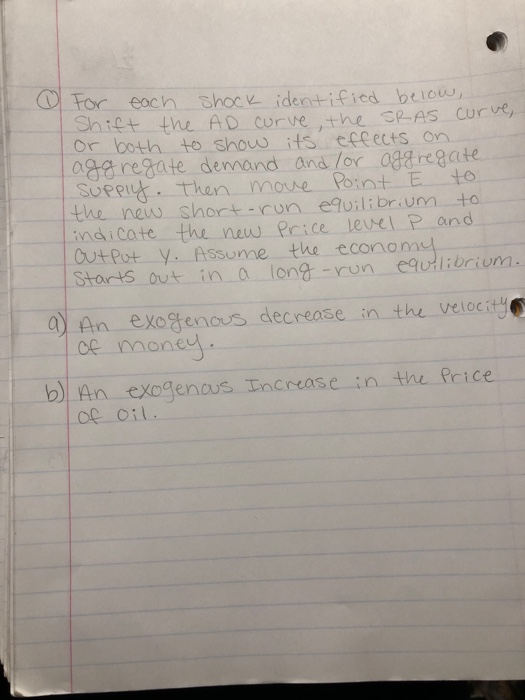 ① For each shock identified below,
Shift the AD curve, the SRAS curve,
or both to show its effects on
aggregate demand and/or aggregate
supply. Then move Point E to
the new short-run equilibrium to
indicate the new Price level P and
output Y. Assume the economy
Starts out in a long-run equilibrium.
a) An exogenous decrease in the velocity
of money.
b) An exogenous Increase in the Price
of oil.